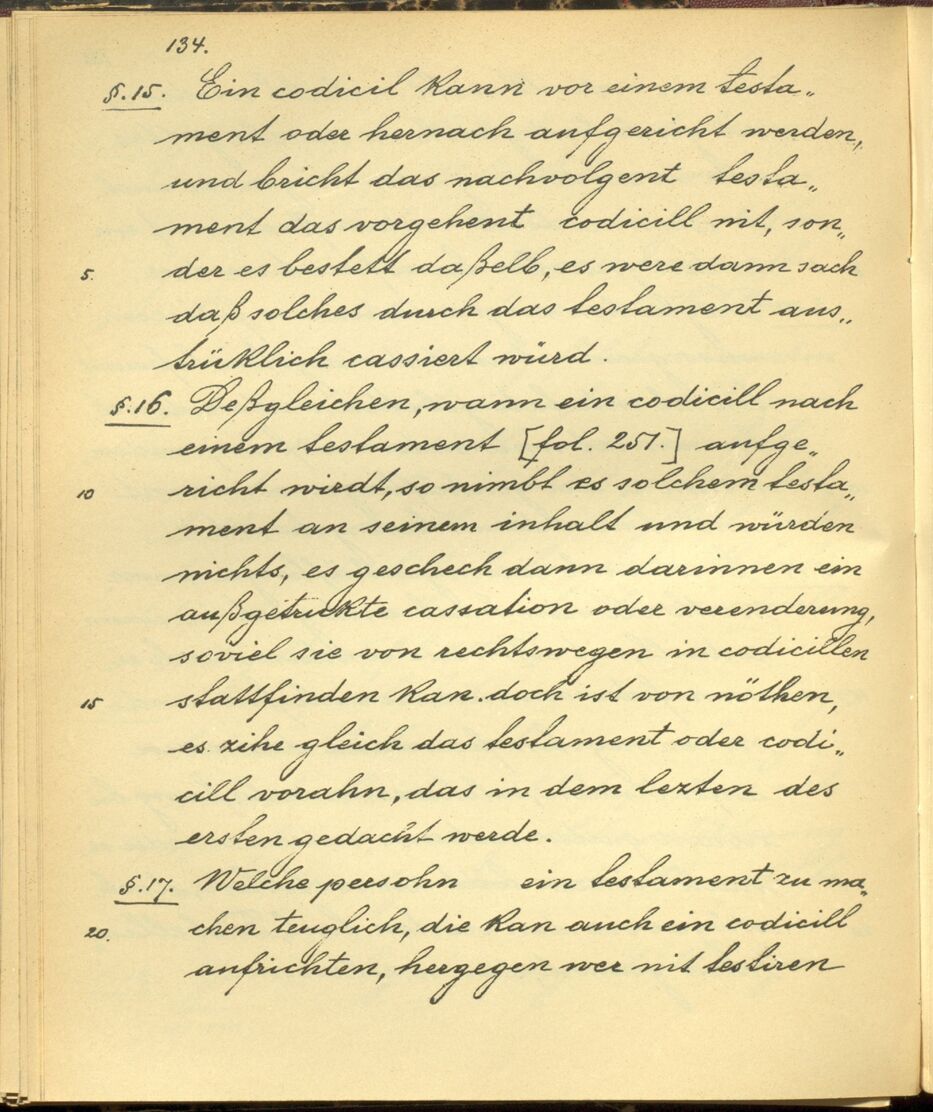 134.
§.15. Ein codicil kann vor einem testa„
ment oder hernach aufgericht werden,
und bricht das nachvolgent testa„
ment das vorgehent codicill nit, son„
5. der es bestett daßelb, es were dann sach
daß solches durch das testament aus„
trüklich cassiert würd.
§.16. Deßgleichen, wann ein codicill nach
einem testament [fol. 251.] aufge„
10 richt wirdt, so nimbt es solchem testa„
ment an seinem inhalt und würden
nichts, es geschech dann darinnen ein
außgetrukte cassation oder verenderung,
soviel sie von rechtswegen in codicillen
15 stattfinden kan. doch ist von nöthen,
es zihe gleich das testament oder codi„
cill vorahn, das in dem lezten des
ersten gedacht werde.
§.17. Welche persohn ein testament zu ma„
20. chen teuglich, die kan auch ein codicill
aufrichten, hergegen wer nit testiren